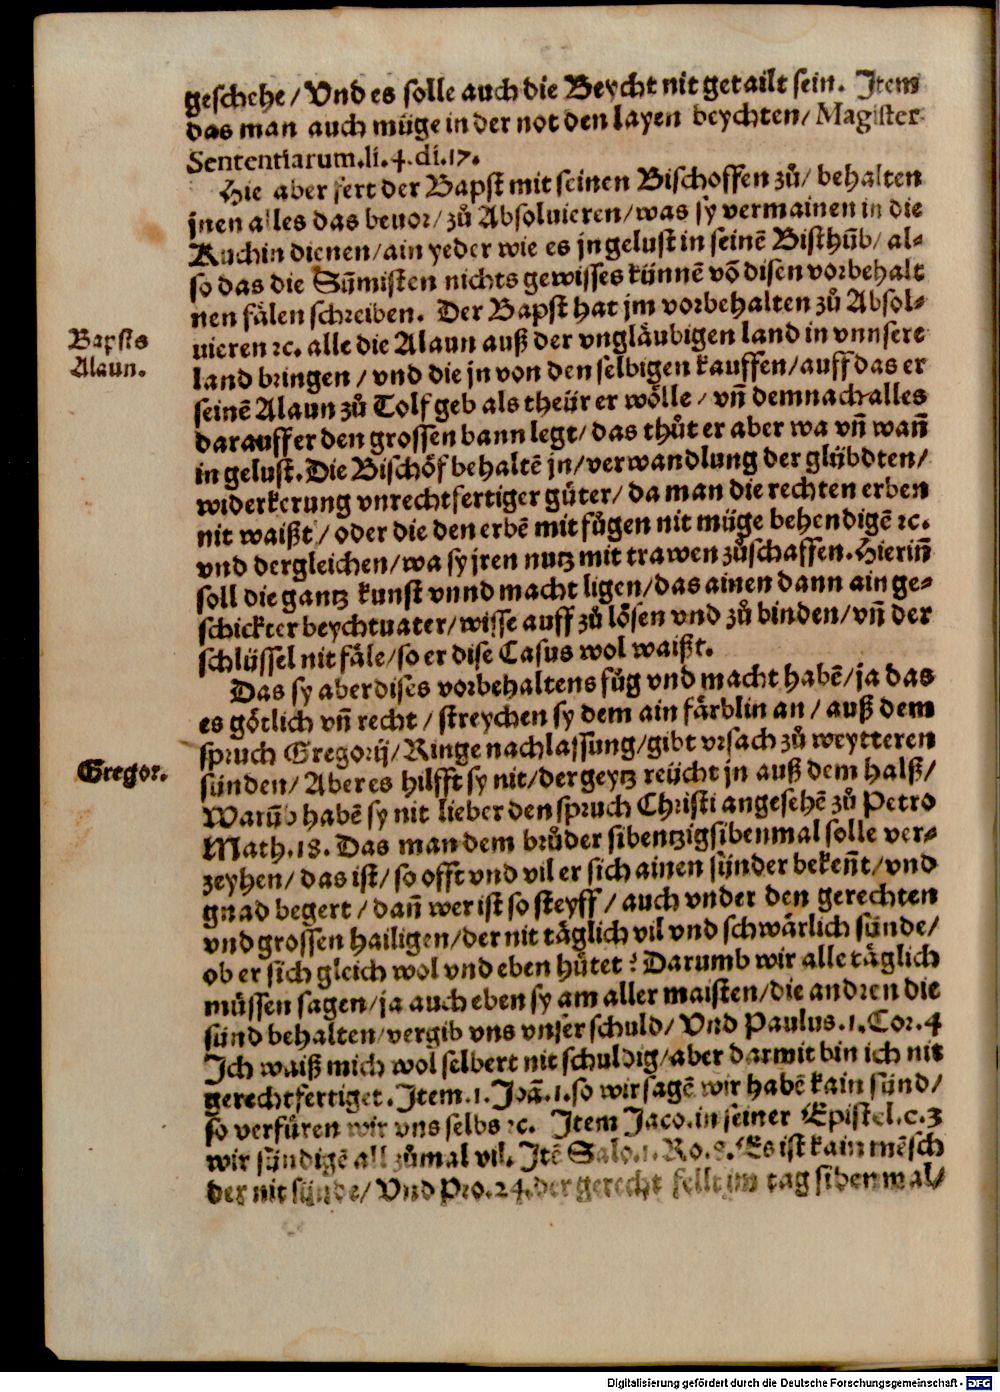 geschehe / Vnd es solle auch die Beycht nit getailt sein. Item
das man auch müge in der not den layen beychten / Magister
Sententiarum. li. 4. di. 17.
Hie aber fert der Bapst mit seinen Bischoffen zů / behalten
jnen alles das beuor / zů Absoluieren / was sy vermainen in die
Kuchin dienen / ain yeder wie es jn gelust in seinē Bisthūb / al=
so das die Sūmisten nichts gewisses künnē vō disen vorbehalt
nen fälen schreiben. Der Bapst hat jm vorbehalten zů Absol=
uieren ꝛc. alle die Alaun auß der vngläubigen land in vnnsere
Bapsts
Alaun.
land bringen / vnd die jn von den selbigen kauffen / auff das er
seinē Alaun zů Tolf geb als theür er wölle / vn̄ demnach alles
darauff er den grossen bann legt / das thůt er aber wa vn̄ wan̄
in gelust. Die Bischöf behaltē jn / verwandlung der glübdten /
widerkerung vnrechtfertiger güter / da man die rechten erben
nit waißt / oder die den erbē mit fůgen nit müge behendigē ꝛc.
vnd dergleichen / wa sy jren nutz mit trawen zůschaffen. Hierin̄
soll die gantz kunst vnnd macht ligen / das ainen dann ain ge=
schickter beychtuater / wisse auff zů lösen vnd zů binden / vn̄ der
schlüssel nit fäle / so er dise Casus wol waißt.
Das sy aber dises vorbehaltens fůg vnd macht habē / ja das
es götlich vn̄ recht / streychen sy dem ain färblin an / auß dem
spruch Gregorij / Ringe nachlassung / gibt vrsach zů weytteren
Gregor.
sünden / Aber es hilfft sy nit / der geytz reücht jn auß dem halß /
Warūb habē sy nit lieber den spruch Christi angesehē zů Petro
Math. 18. Das man dem brůder sibentzigsibenmal solle ver=
zeyhen / das ist / so offt vnd vil er sich ainen sünder beken̄t / vnd
gnad begert / dan̄ wer ist so steyff / auch vnder den gerechten
vnd grossen hailigen / der nit täglich vil vnd schwärlich sünde /
ob er sich gleich wol vnd eben hütet? Darumb wir alle täglich
müssen sagen / ja auch eben sy am aller maisten / die andren die
sünd behalten / vergib vns vnser schuld / Vnd Paulus. 1. Cor. 4
Ich waiß mich wol selbert nit schuldig / aber darmit bin ich nit
gerechtfertiget. Item. 1. Joā. 1. so wir sagē wir habē kain sünd /
so verfüren wir vns selbs ꝛc. Item Jaco. in seiner Epistel. c. 3
wir sündigē all zůmal vil. Itē Salo. 1. Ro. 8. Es ist kain mēsch
der nit sünde / Vnd Pro. 24. der gerecht fellt im tag siben mal /
Digitalisierung gefördert durch die Deutsche Forschungsgemeinschaft - DFG